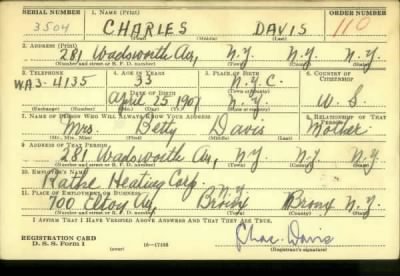 SERIAL NUMBER 1. NAME (Print) ORDER NUMBER
3504 CHARLES DAVIS 110
(First) (Middle) (Last)
2. ADDRESS (Print)
281 Wadsworth Av, N.Y. N.Y. N.Y.
(Number and street or R. F. D. number) (Town) (County) (State)
3. TELEPHONE 4. AGE IN YEARS 5. PLACE OF BIRTH 6. COUNTRY OF CITIZENSHIP
WA3-4135 33 N.Y.C.
DATE OF BIRTH
April 25, 1907 N.Y. U.S.
(Exchange) (Number) (Mo.) (Day) (Yr.) (State or country)
7. NAME OF PERSON WHO WILL ALWAYS KNOW YOUR ADDRESS 8. RELATIONSHIP OF THAT PERSON
Mrs. Betty Davis Mother
(Mr., Mrs., Miss) (First) (Middle) (Last)
9. ADDRESS OF THAT PERSON
281 Wadsworth Av, N.Y. N.Y. N.Y.
(Number and street or R. F. D. number) (Town) (County) (State)
10. EMPLOYER'S NAME
Rathe Heating Corp.
11. PLACE OF EMPLOYMENT OR BUSINESS
N.Y.
700 Elton Av, Bronx Bronx N.Y.
(Number and street or R. F. D. number) (Town) (County) (State)
I AFFIRM THAT I HAVE VERIFIED ABOVE ANSWERS AND THAT THEY ARE TRUE.
REGISTRATION CARD
D. S. S. Form 1 (over) 16—17105 Chas. Davis
(Registrant's signature)